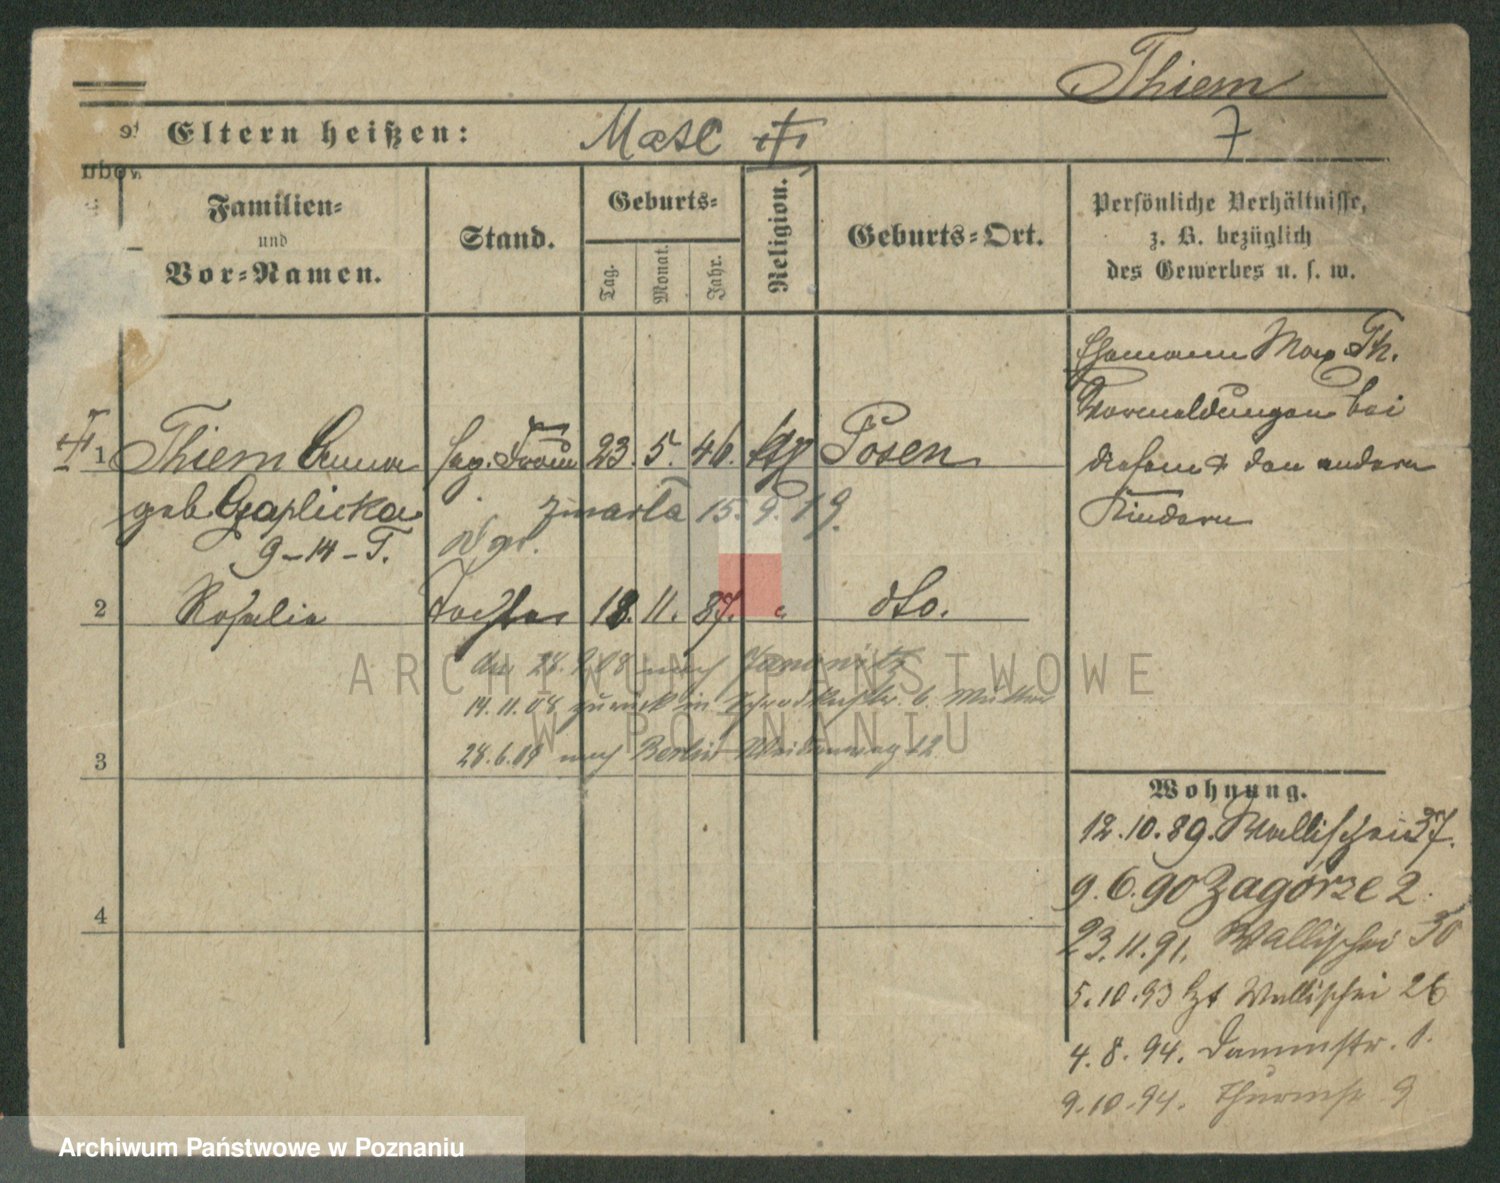 Thiem
Eltern heißen: Maxe
7
Familien-
und
Vor-Namen.
Stand.
Geburts-
Tag.
Monat.
Jahr.
Religion.
Geburts-Ort.
Persönliche Verhältnisse,
z. B. bezüglich
des Gewerbes u. s. w.
Ehemann Max Th.
Vormeldungen bei
diesem & den andern
Kindern
1 Thiem Anna sep. Frau 23. 5. 46. Posen
geb. Czaplicka zmarła 15. 9. 19.
9-14-T.
2 Rosalie Tochter 18. 11. 87. " dto.
den 28.9.08 nach Janowitz
14.11.08 zurück in b. Mutter
3 28.6.09 nach Berlin Weidenweg 12
4
Wohnung.
12.10.89. Wallischei 37.
9.6.90 Zagórze 2.
23.11.91. Wallischei 30
5.10.93 Wallischei 26
4.8.94. Dammstr. 1.
9.10.94. Thurmstr 9
ARCHIWUM PAŃSTWOWE
W POZNANIU
Archiwum Państwowe w Poznaniu